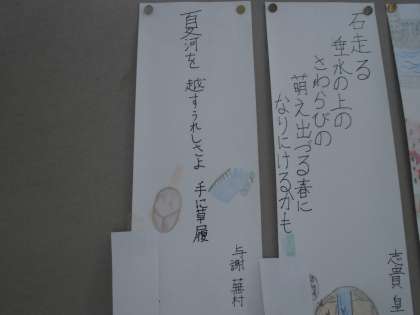 石走る
垂水の上の
さわらびの
萌え出づる春に
なりにけるかも
志貴皇
夏河を 越すうれしさよ 手に草履
与謝 蕪村